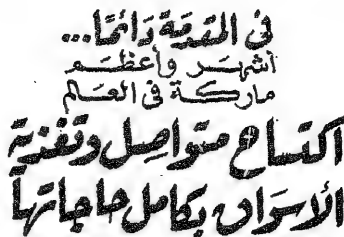 في المقدمة دائمًا...
أشهر وأعظم
ماركة في العالم
اكتساح متواصل وتغذية
الأسواق بكامل حاجاتها